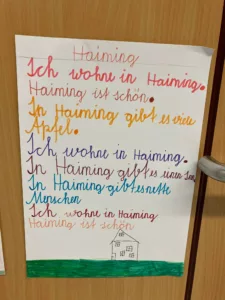 Haiming
Ich wohne in Haiming.
Haiming ist schön.
In Haiming gibt es viele
Äpfel.
Ich wohne in Haiming.
In Haiming gibt es einen
In Haiming gibt es nette
Menschen
Ich wohne in Haiming
Haiming ist schön